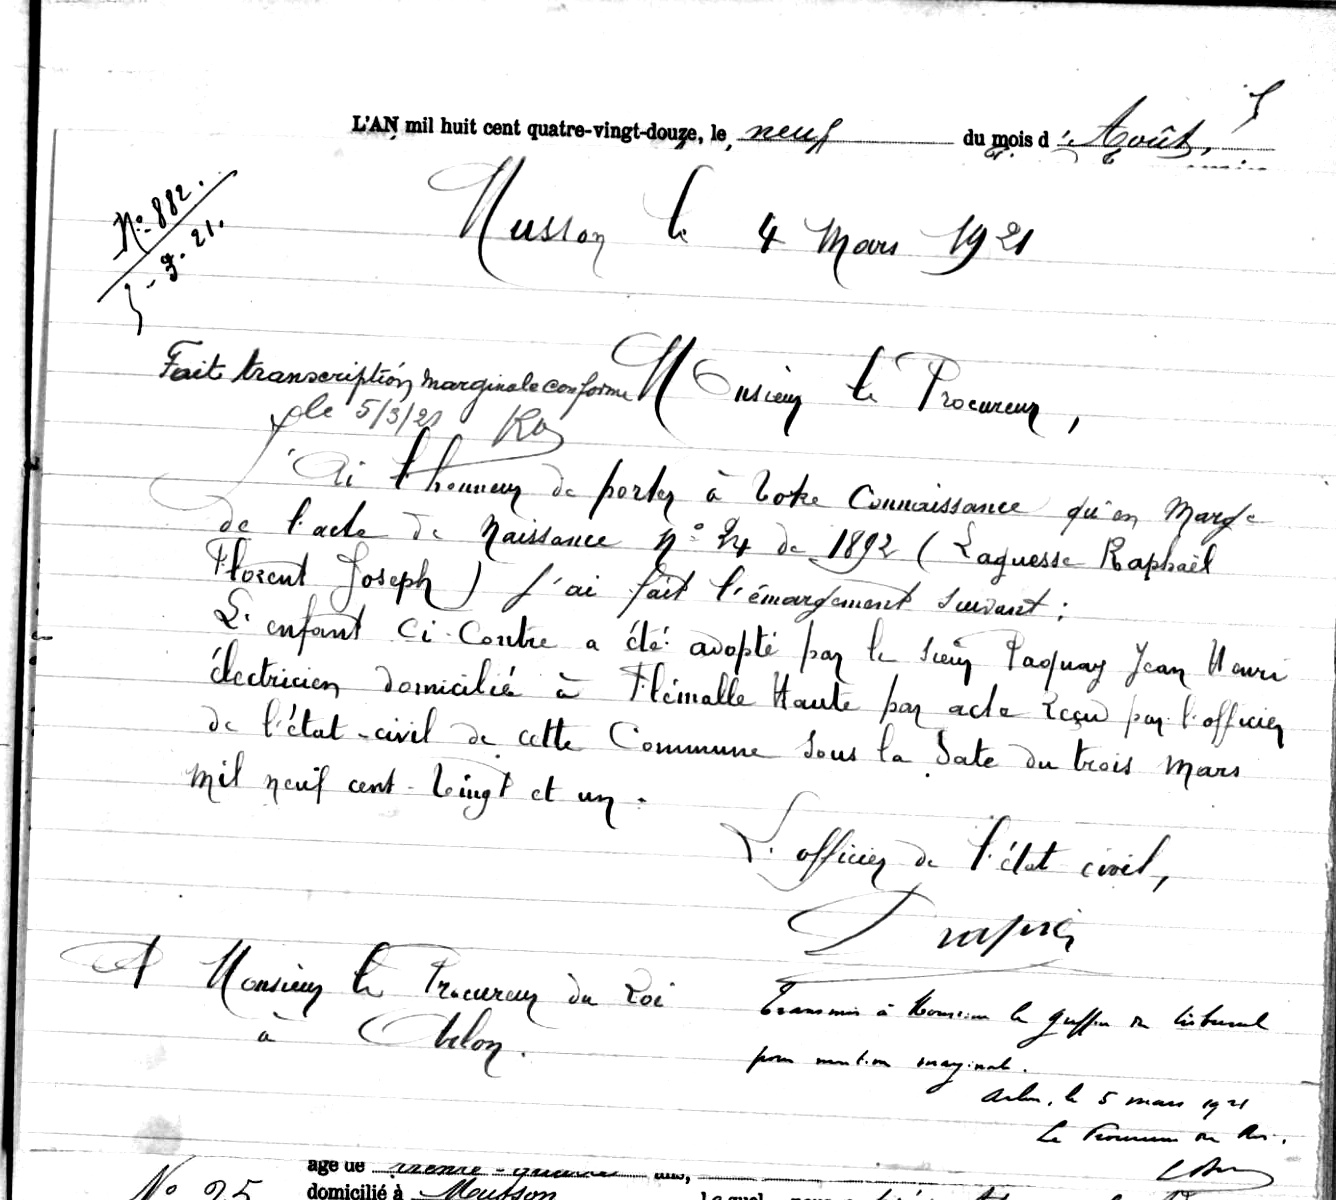 L'AN mil huit cent quatre-vingt-douze, le neuf du mois d'Août,
N° 882.
5-3-21.
Musson le 4 Mars 1921
Fait transcription marginale conforme
le 5/3/21
Monsieur le Procureur,
J'ai l'honneur de porter à votre connaissance qu'en marge
de l'acte de Naissance N° 24 de 1892 (Laguesse Raphaël
Florent Joseph) j'ai fait l'émargement suivant:
L'enfant ci-contre a été adopté par le sieur Paquay Jean Henri
électricien domicilié à Flémalle Haute par acte reçu par l'officier
de l'état-civil de cette Commune sous la date du trois mars
mil neuf cent-vingt et un.
L'officier de l'état civil,
A Monsieur le Procureur du Roi
à Arlon.
Transmis à Monsieur le Greffier du tribunal
pour mention marginale.
Arlon, le 5 mars 1921
Le Procureur du Roi.
âge de trente-quatre ans,
N° 25
domicilié à Musson